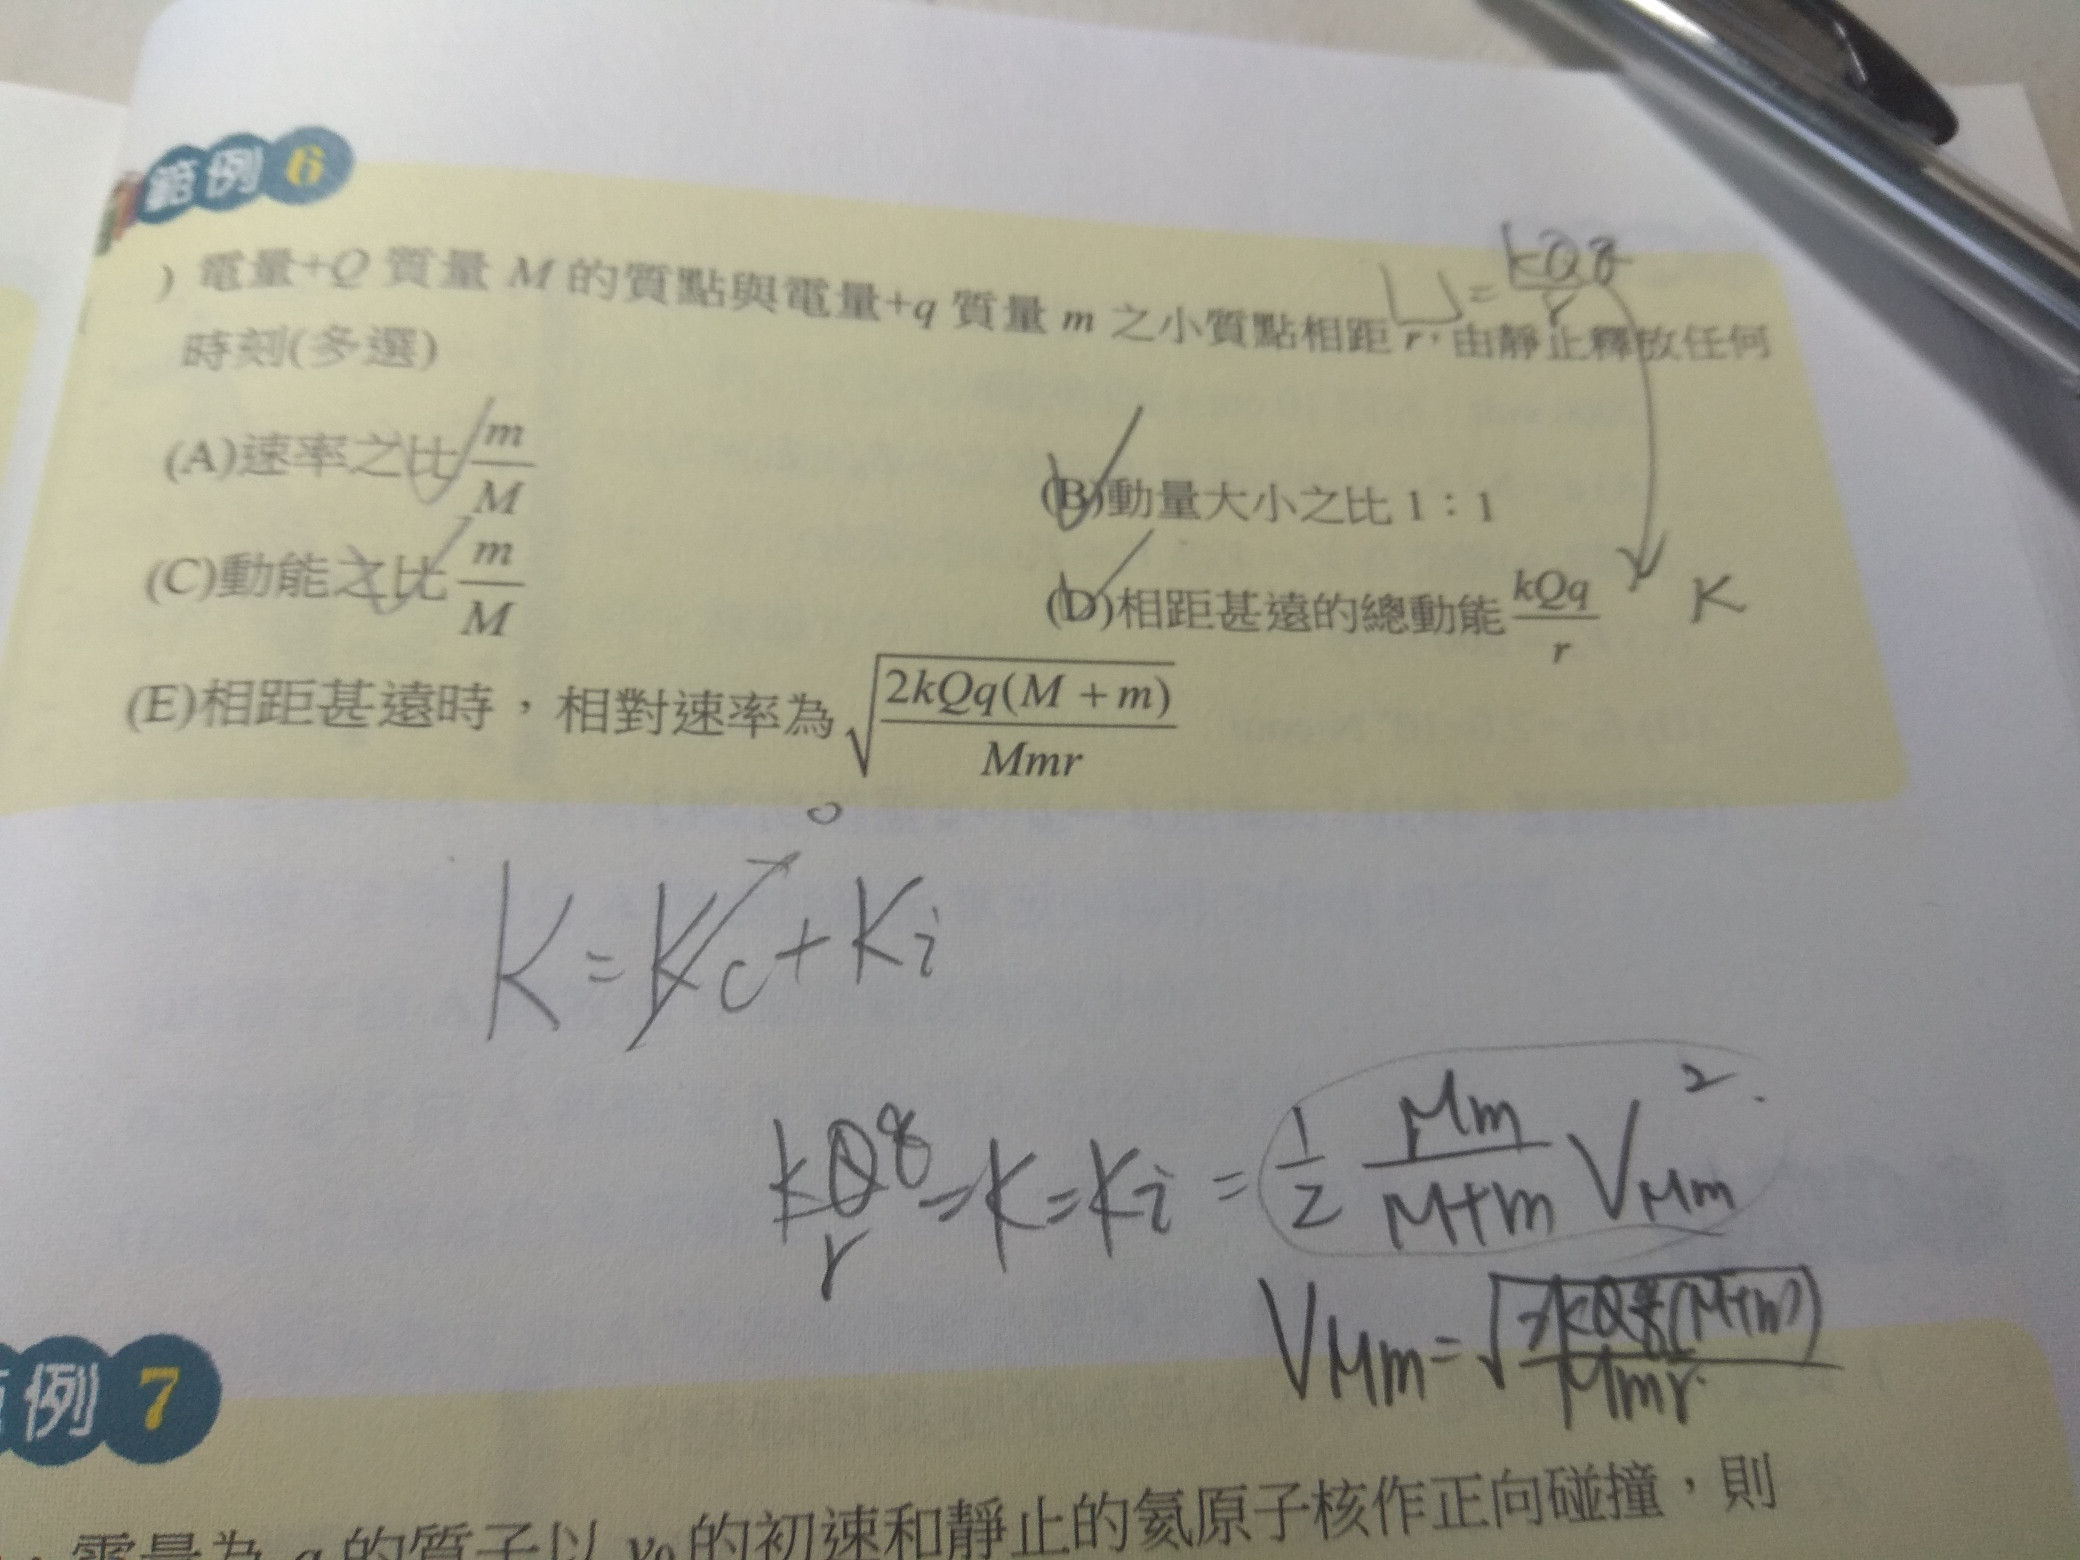 範例 6
) 電量+Q 質量 M 的質點與電量+q 質量 m 之小質點相距 r,由靜止釋放任何
U = kQq/r
時刻(多選)
(A)速率之比 m/M
(B)動量大小之比 1:1
(C)動能之比 m/M
(D)相距甚遠的總動能 kQq/r
K
(E)相距甚遠時,相對速率為 √(2kQq(M + m)/Mmr)
0
K = Kc + Ki
kQq/r = K = Ki = 1/2 Mm/(M+m) VMm²
VMm = √(2kQq(M+m)/Mmr)
例 7
電量為 q 的質子以 v₀ 的初速和靜止的氦原子核作正向碰撞,則